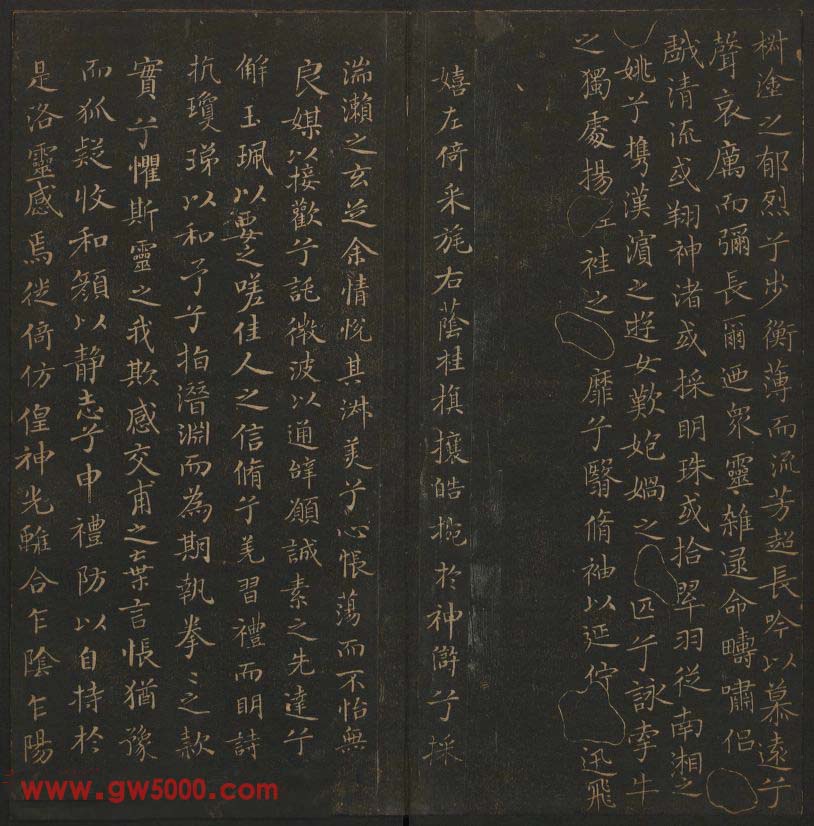 椒塗之郁烈兮步衡薄而流芳超長吟以慕遠兮
聲哀厲而彌長爾迺衆靈雜遝命疇嘯侣
戲清流或翔神渚或採明珠或拾翠羽從南湘之
姚兮携漢濱之遊女歎媧之匹兮詠牽牛
之獨處揚袿之靡兮翳脩袖以延佇迅飛
嬉左倚采旄右蔭桂旗攘皓捥於神滸兮採
湍瀨之玄芝余情悅其淑美兮心悵蕩而不怡無
良媒以接歡兮託微波以通辭願誠素之先達兮
解玉珮以要之嗟佳人之信脩兮羌習禮而明詩
抗瓊珶以和予兮指潛淵而為期執拳〻之款
實兮懼斯靈之我欺感交甫之棄言悵猶豫
而狐疑收和顔以静志兮申禮防以自持於
是洛靈感焉徙倚仿偟神光離合乍陰乍陽
www.gw5000.com